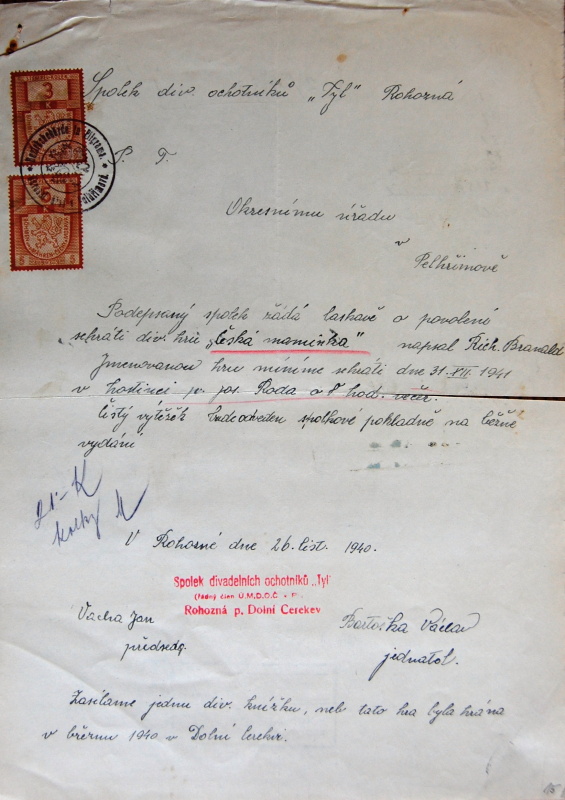 Spolek div. ochotníků „Tyl" Rohozná
3
K
P. T.
5
Okresnímu úřadu
v
Pelhřimově
Podepsaný spolek žádá laskavě o povolení
sehráti div. hru „Česká maminka" napsal Rich. Branald
Jmenovanou hru míníme sehráti dne 31. XII. 1941
v hostinci p. Jos. Roda o 8 hod. večer.
Čistý výtěžek bude odveden spolkové pokladně na běžné
vydání
21-K
kolky
V Rohozné dne 26. list. 1940.
Spolek divadelních ochotníků „Tyl"
(řádný člen Ú.M.D.O.Č.
Rohozná p. Dolní Cerekev
Vacha Jan
předseda.
Bartoška Václav
jednatel.
Zasíláme jednu div. knížku, neb tato hra byla hrána
v březnu 1940 v Dolní Cerekvi.
15